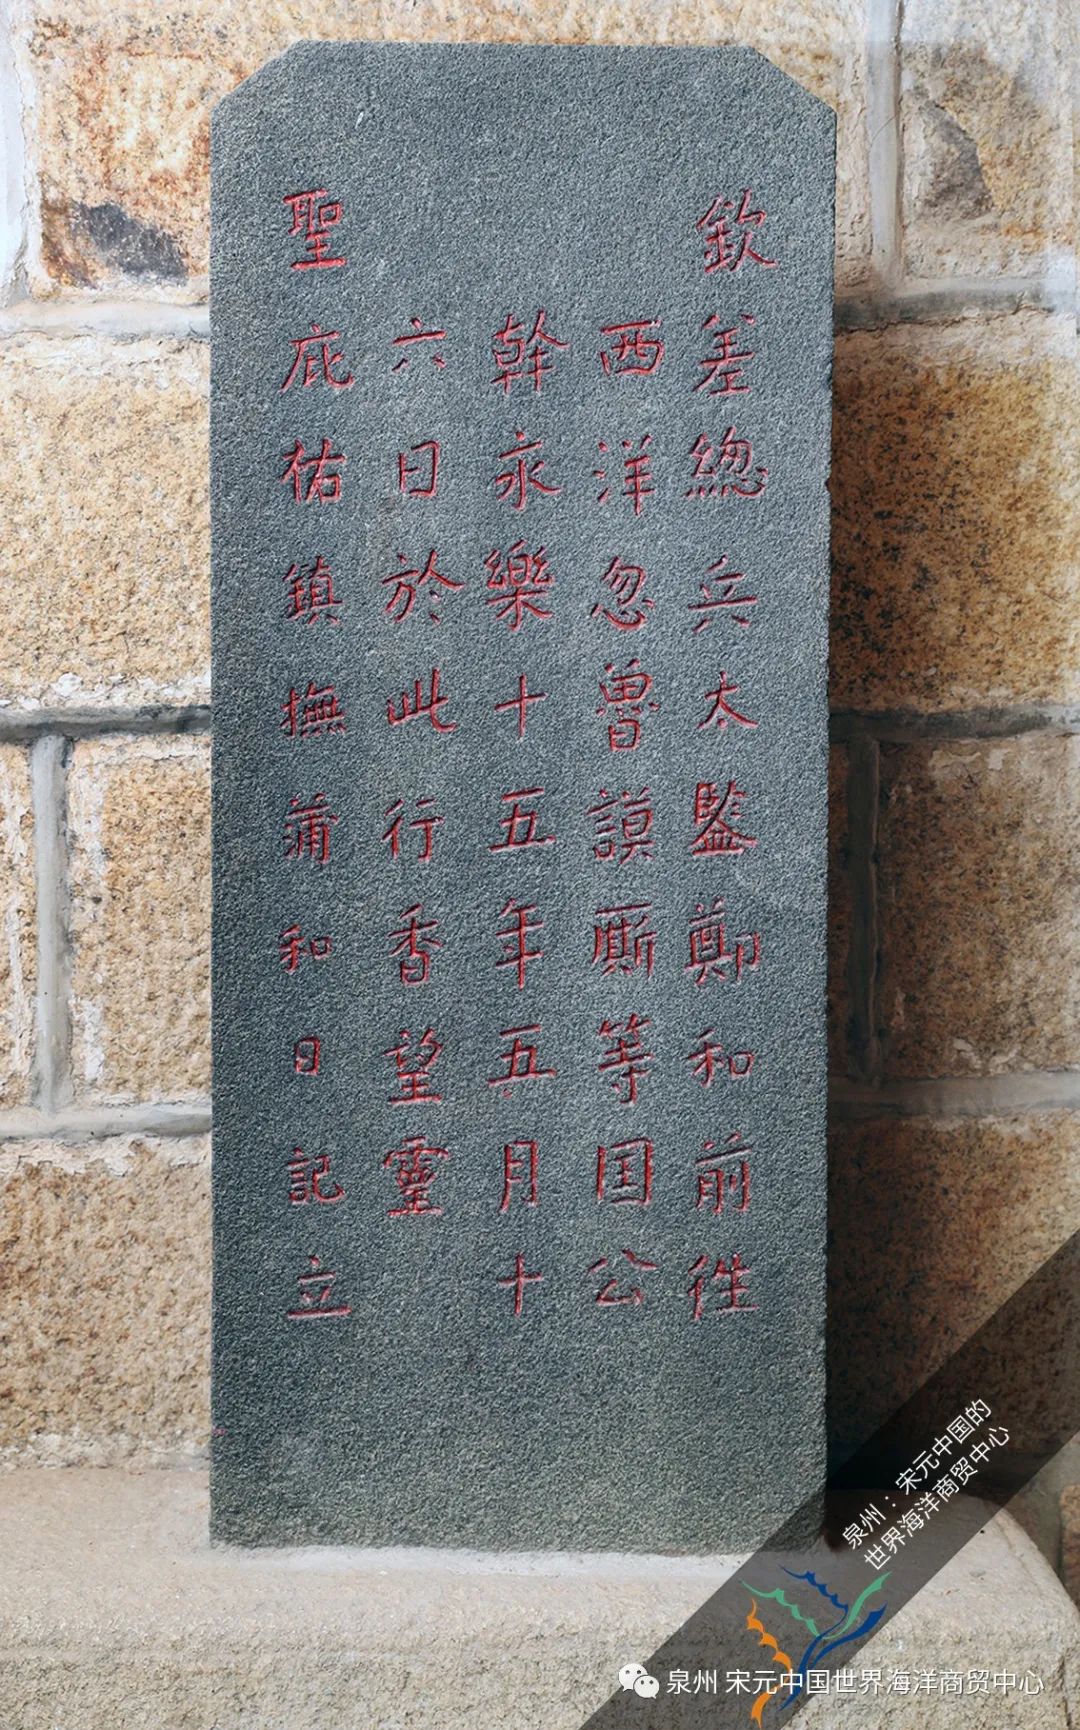 欽差總兵太監鄭和前徃
西洋忽魯謨厮等国公
幹永樂十五年五月十
六日於此行香望靈
聖庇祐鎮撫蒲和日記立
泉州：宋元中国的
世界海洋商贸中心
泉州 宋元中国世界海洋商贸中心